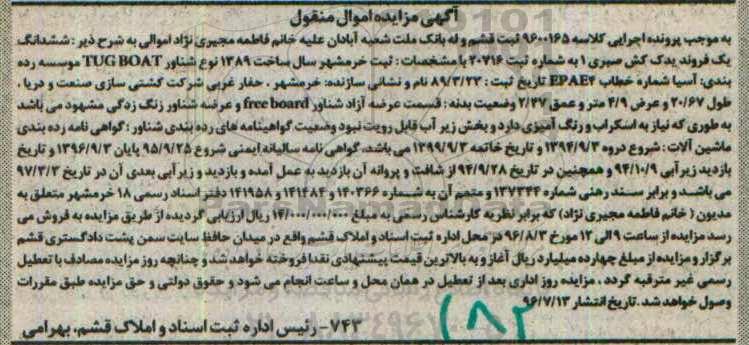 آگهی مزایده اموال منقول
به موجب پرونده اجرایی کلاسه ۹۶۰۰۱۶۵ ثبت قشم و له بانک ملت شعبه آبادان علیه خانم فاطمه مجیری نژاد اموالی به شرح ذیر : ششدانگ
یک فروند یدک کش صبری ۱ به شماره ثبت ۲۰۷۱۶ با مشخصات : ثبت خرمشهر سال ساخت ۱۳۸۹ نوع شناور TUG BOAT موسسه رده
بندی: آسیا شماره خطاب EPAE۴ تاریخ ثبت : ۸۹/۳/۲۲ نام و نشانی سازنده: خرمشهر ، حفار غربی شرکت کشتی سازی صنعت و دریا ،
طول ۲۰/۶۷ و عرض ۴/۹ متر و عمق ۲/۴۷ وضعیت بدنه : قسمت عرضه آزاد شناور free board و عرضه شناور زنگ زدگی مشهود می باشد
به طوری که نیاز به اسکراب و رنگ آمیزی دارد و بخش زیر آب قابل رویت نبود وضعیت گواهینامه های رده بندی شناور : گواهی نامه رده بندی
ماشین آلات : شروع دروه ۱۳۹۴/۹/۳ و تاریخ خاتمه ۱۳۹۹/۹/۳ می باشد، گواهی نامه سالیانه ایمنی شروع ۹۵/۹/۲۵ پایان ۱۳۹۶/۹/۳ و تاریخ
بازدید زیر آبی ۹۴/۱۰/۹ و همچنین در تاریخ ۹۴/۹/۲۸ از شافت و پروانه آن بازدید به عمل آمده و بازدید و زیر آبی بعدی آن در تاریخ ۹۷/۳/۲
می باشد و برابر سند رهنی شماره ۱۳۷۳۴۴ و متمم آن به شماره ۱۴۰۳۶۶ و ۱۴۱۴۸۴ و ۱۴۱۹۵۸ دفتر اسناد رسمی ۱۸ خرمشهر متعلق به
مدیون ( خانم فاطمه مجیری نژاد) که برابر نظریه کارشناس رسمی به مبلغ ۱۴/۰۰۰/۰۰۰/۰۰۰ ریال ارزیابی گردیده از طریق مزایده به فروش می
رسد مزایده از ساعت ۹ الی ۱۲ مورخ ۹۶/۸/۳ در محل اداره ثبت اسناد و املاک قشم واقع در میدان حافظ سایت سمن پشت دادگستری قشم
برگزار و مزایده از مبلغ چهارده میلیارد ریال آغاز و به بالاترین قیمت پیشنهادی نقدا فروخته خواهد شد و چنانچه روز مزایده مصادف با تعطیل
رسمی غیر مترقبه گردد ، مزایده روز اداری بعد از تعطیل در همان محل و ساعت انجام می شود و حقوق دولتی و حق مزایده طبق مقررات
وصول خواهد شد .تاریخ انتشار ۹۶/۷/۱۳
۷۴۳- رئیس اداره ثبت اسناد و املاک قشم، بهرامی